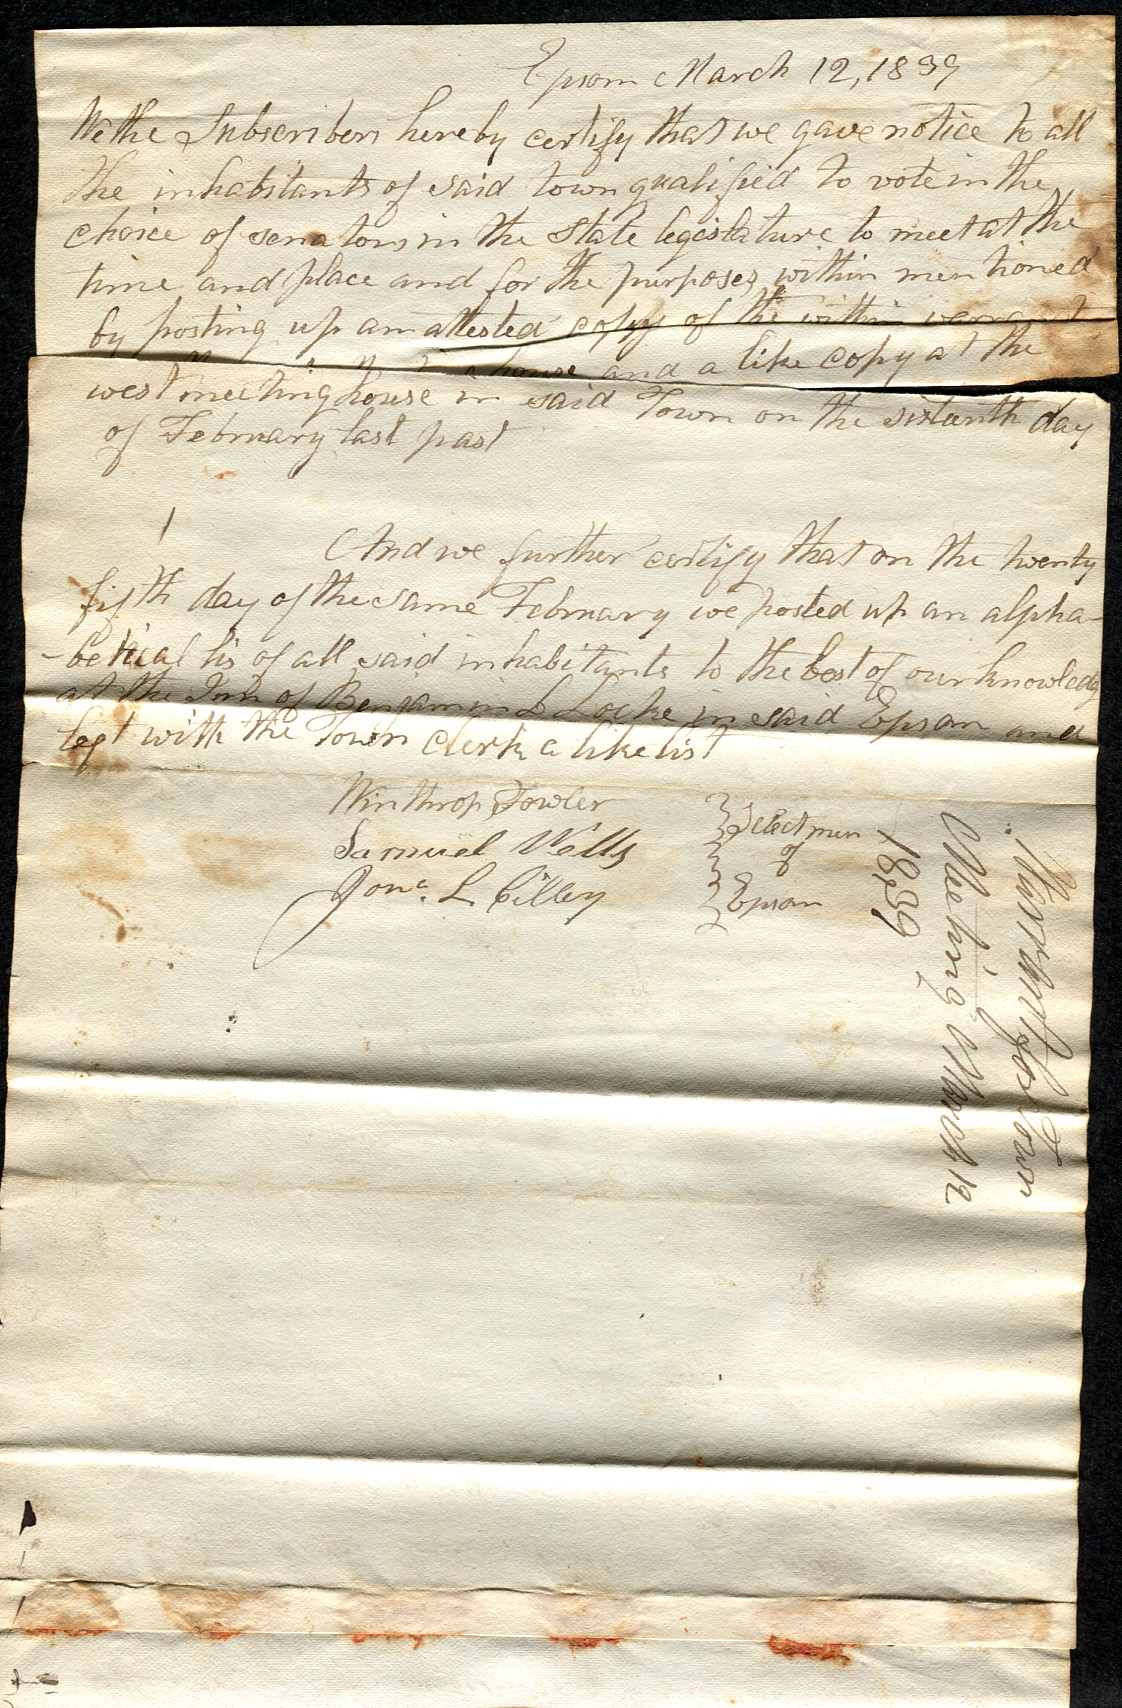 Epsom March 12, 1839
We the Subscribers hereby certify that we gave notice to all
the inhabitants of said town qualified to vote in the
choice of senators in the State legislature to meet at the
time and place and for the purposes within mentioned
by posting up an attested copy of the within warrant
house and a like copy at the
west meeting house in said Town on the sixteenth day
of February last past
And we further certify that on the twenty
fifth day of the same February we posted up an alpha-
-betical lis of all said inhabitants to the best of our knowledg
at the Inn of Benjamin L Locke in said Epsom and
left with the Town clerk a like list
Winthrop Fowler
Samuel Wells
Jona. L. Cilley
Selectmen
of
Epsom
Warrant for Town
Meeting March 12
1839